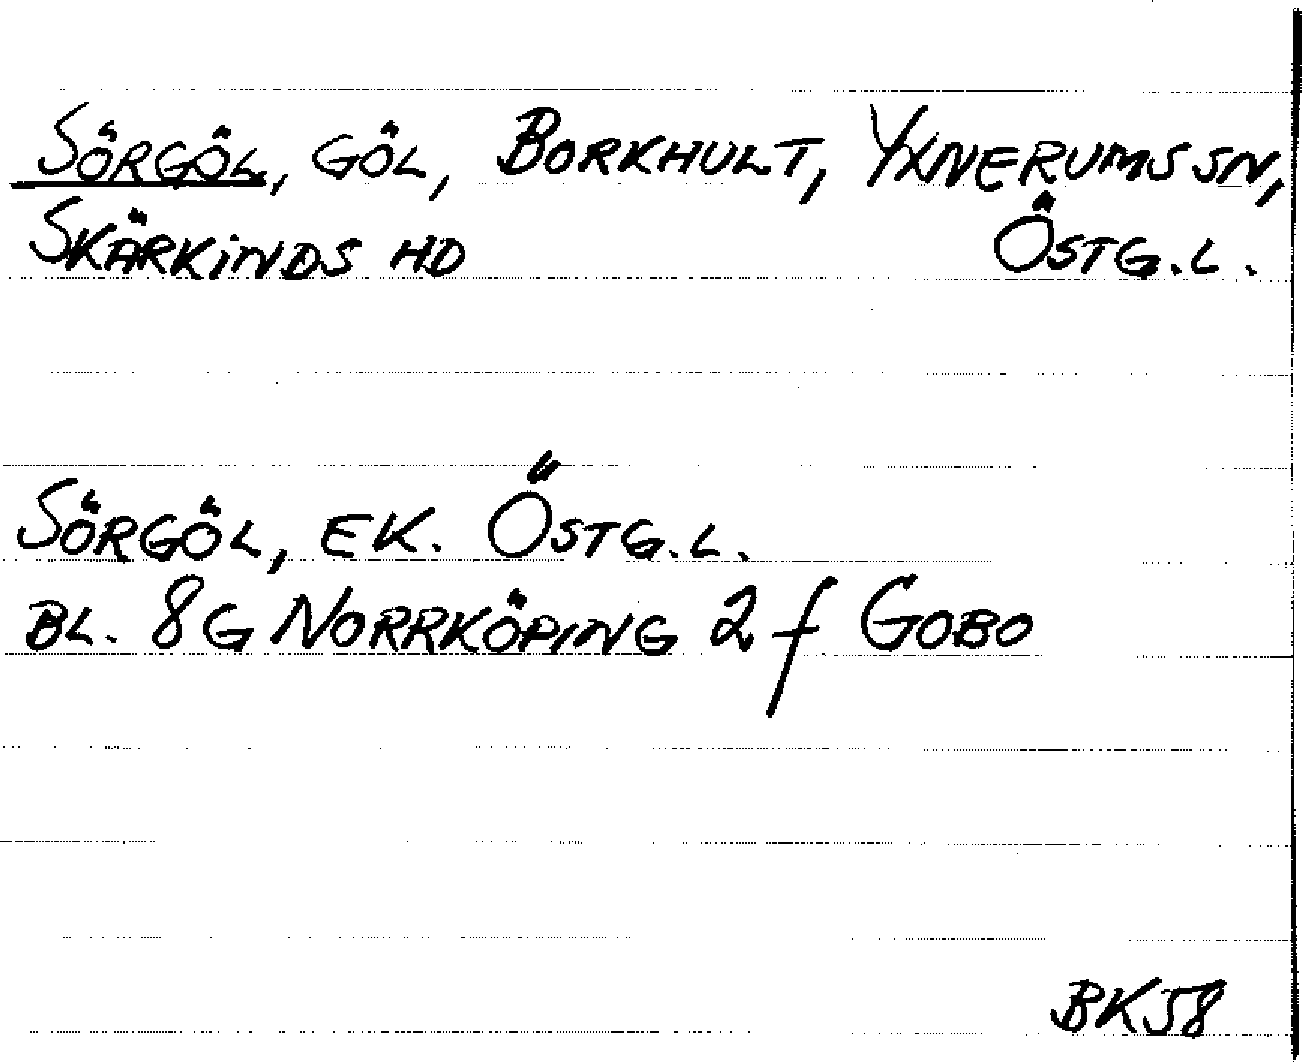 SÖRGÖL, GÖL, BORKHULT, YXNERUMS SN,
SKÄRKINDS HD ÖSTG.L.
SÖRGÖL, EK. ÖSTG.L.
BL. 8G NORRKÖPING 2 f GOBO
BK58